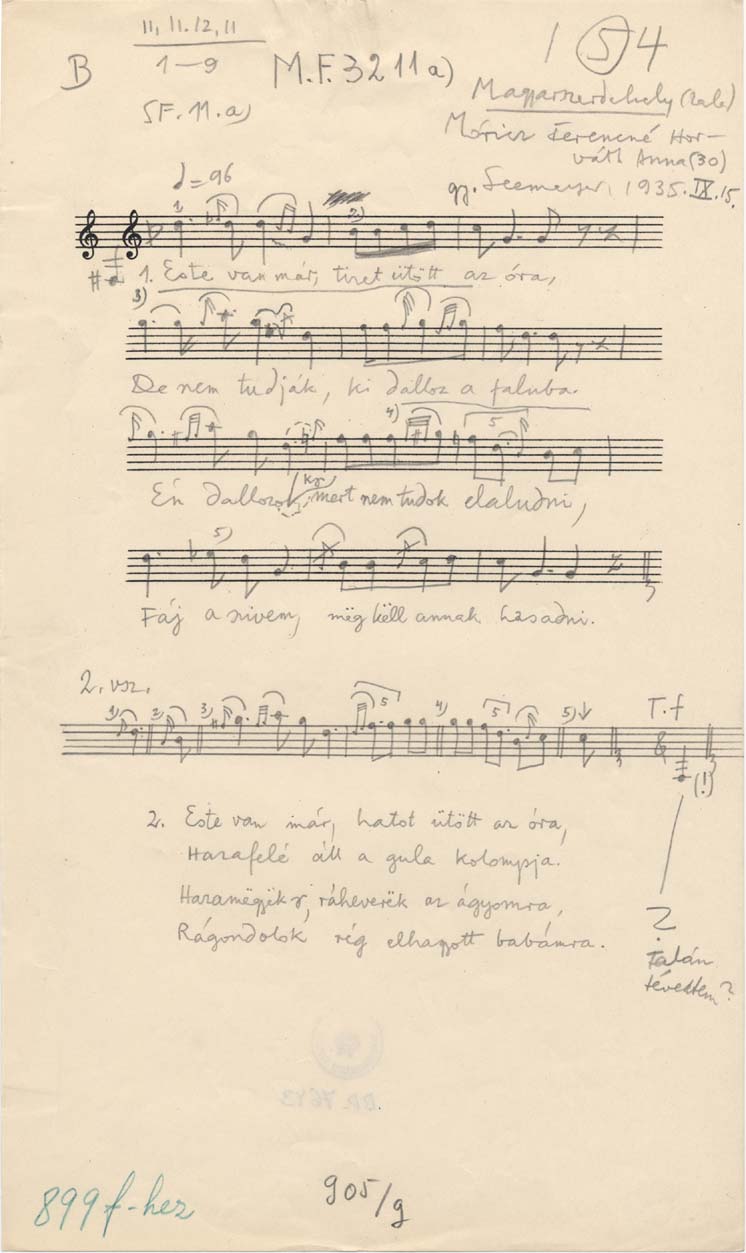 11, 11. 12, 11
B
1—9
M.F. 3211 a)
1 5 4
SF. 11. a)
Magyarszerdahely (Zala)
Móricz Ferencné Hor-
váth Anna (30)
gy. Seemayer, 1935. IX. 15.
♩=96
1) 2)
1. Este van már, tizet ütött az óra,
3)
De nem tudják, ki dalloz a faluba.
4) 5
Én dallozok, mert nem tudok elaludni,
5)
Fáj a szivem, még këll annak hasadni.
2. vsz.
1) 2) 3) 5 4) 5 5) T. f
(!)
2. Este van már, hatot ütött az óra,
Hazafelé áll a gula kolompja.
Hazamëgyëk, ráheverëk az ágyomra,
Rágondolok rég elhagyott babámra.
?
Talán
tévedtem?
BR. 7643
899f-hez
905/g